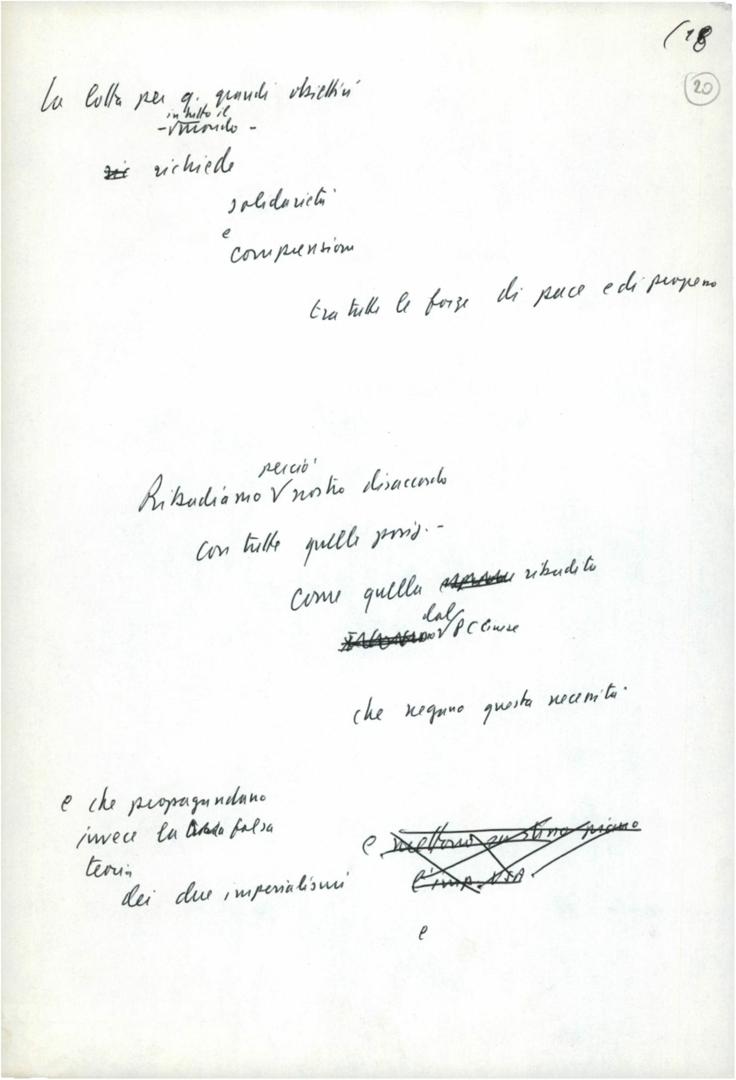 (18
20
La lotta per q. grandi obiettivi
in tutto il
- mondo -
richiede
solidarietà
e
comprensione
tra tutte le forze di pace e di progresso
perciò
Ribadiamo nostro disaccordo
con tutte quelle posiz. -
come quella ribadito
dal
PC Cinese
che negano questa necessità
e che propagandano
invece la falsa
teoria
dei due imperialismi
e mettono sullo stesso piano
l'imp. USA
e